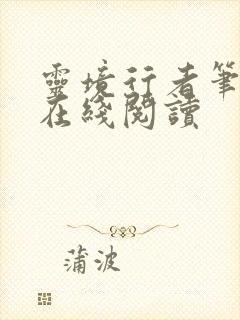 靈境行者筆
在綫閱讀
蒲波